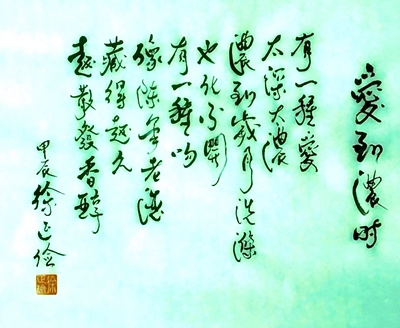 愛到濃時
有一種愛
太深太濃
濃到歲月洗滌
也化不開
有一種吻
像陳年老酒
藏得越久
越散發香醇
甲辰徐正